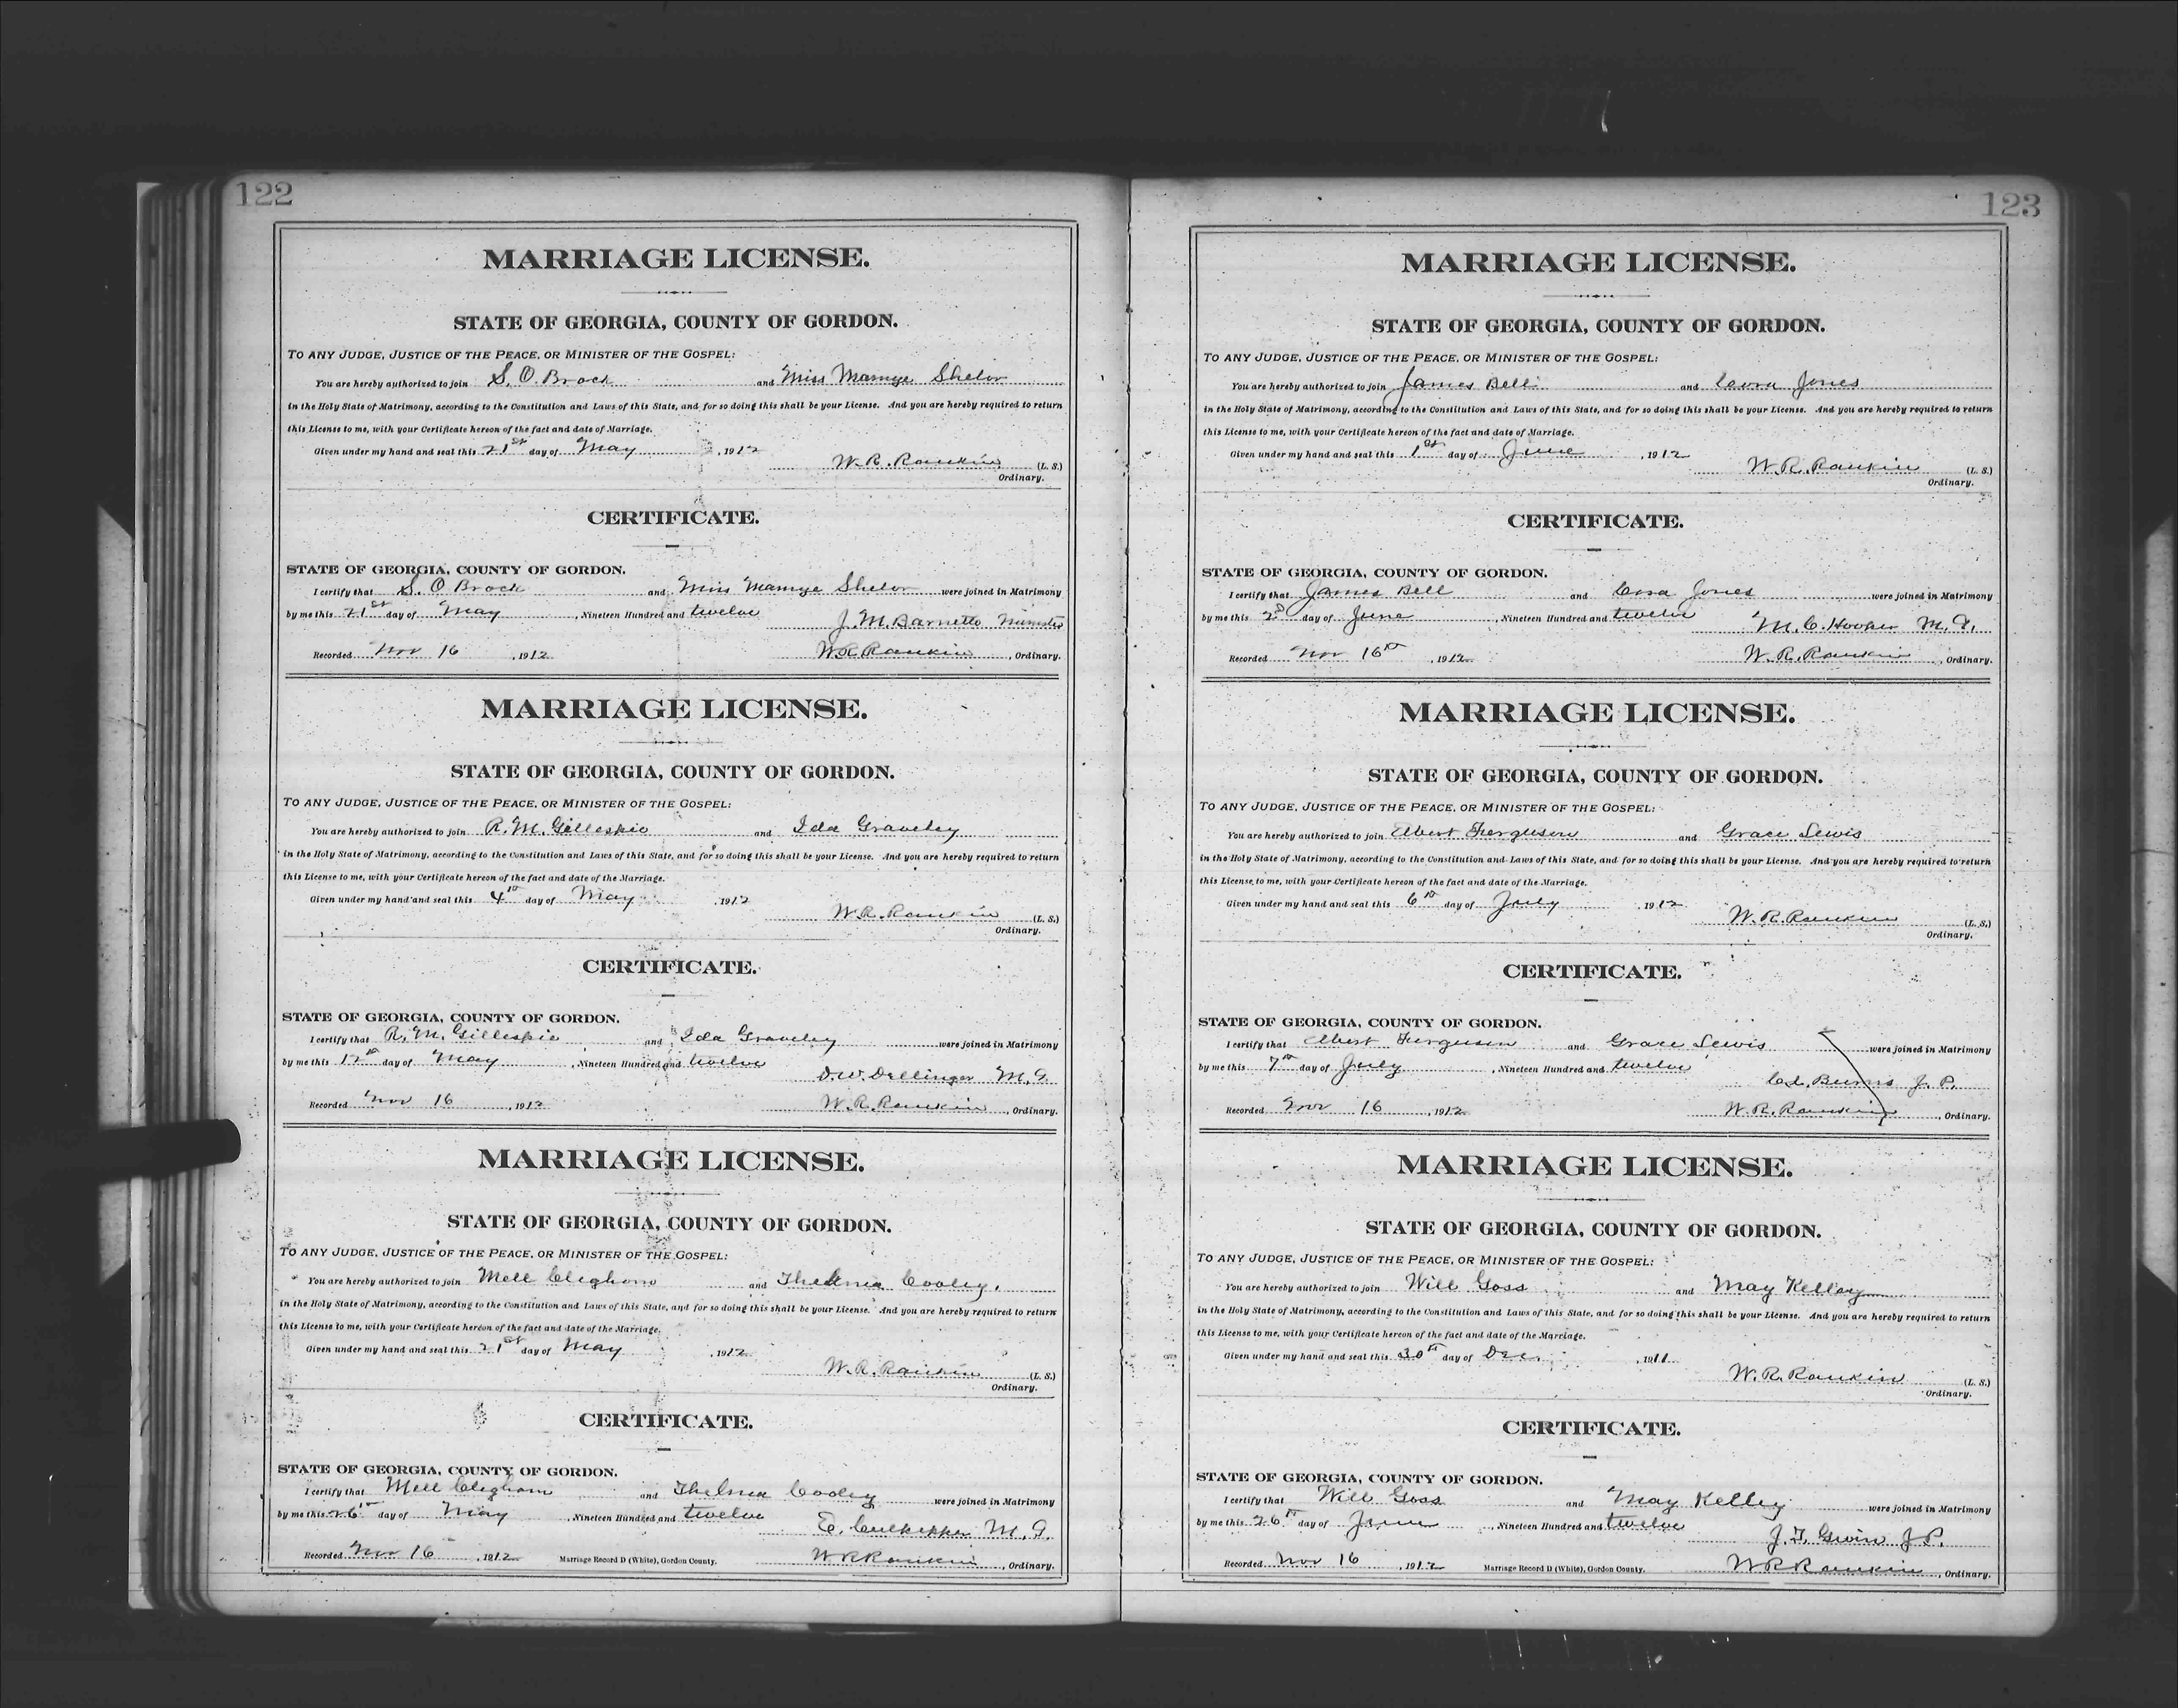 122
MARRIAGE LICENSE.
STATE OF GEORGIA, COUNTY OF GORDON.
TO ANY JUDGE, JUSTICE OF THE PEACE, OR MINISTER OF THE GOSPEL:
You are hereby authorized to join S. O. Brock and Miss Mamye Shelor
in the Holy State of Matrimony, according to the Constitution and Laws of this State, and for so doing this shall be your License. And you are hereby required to return
this License to me, with your Certificate hereon of the fact and date of Marriage.
Given under my hand and seal this 21st day of May, 1912
W. R. Rankin (L. S.)
Ordinary.
CERTIFICATE.
STATE OF GEORGIA, COUNTY OF GORDON.
I certify that S. O Brock and Miss Mamye Shelor were joined in Matrimony
by me this 21st day of May, Nineteen Hundred and twelve
J. M. Barnette Minister
Recorded Nov 16, 1912 W. R. Rankin, Ordinary.
MARRIAGE LICENSE.
STATE OF GEORGIA, COUNTY OF GORDON.
TO ANY JUDGE, JUSTICE OF THE PEACE, OR MINISTER OF THE GOSPEL:
You are hereby authorized to join R. M. Gillespie and Ida Graveley
in the Holy State of Matrimony, according to the Constitution and Laws of this State, and for so doing this shall be your License. And you are hereby required to return
this License to me, with your Certificate hereon of the fact and date of the Marriage.
Given under my hand and seal this 4th day of May, 1912
W. R. Rankin (L. S.)
Ordinary.
CERTIFICATE.
STATE OF GEORGIA, COUNTY OF GORDON.
I certify that R. M. Gillespie and Ida Graveley were joined in Matrimony
by me this 12th day of May, Nineteen Hundred and twelve
D. W. Dellinger M. G.
Recorded Nov 16, 1912 W. R. Rankin, Ordinary.
MARRIAGE LICENSE.
STATE OF GEORGIA, COUNTY OF GORDON.
TO ANY JUDGE, JUSTICE OF THE PEACE, OR MINISTER OF THE GOSPEL:
You are hereby authorized to join Mell Cleghorn and Thelma Cooley.
in the Holy State of Matrimony, according to the Constitution and Laws of this State, and for so doing this shall be your License. And you are hereby required to return
this License to me, with your Certificate hereon of the fact and date of the Marriage.
Given under my hand and seal this 21st day of May, 1912
W. R. Rankin (L. S.)
Ordinary.
CERTIFICATE.
STATE OF GEORGIA, COUNTY OF GORDON.
I certify that Mell Cleghorn and Thelma Cooley were joined in Matrimony
by me this 26th day of May, Nineteen Hundred and twelve
E. Culpepper M. G.
Recorded Nov 16, 1912 Marriage Record D (White), Gordon County. W R Rankin, Ordinary.
123
MARRIAGE LICENSE.
STATE OF GEORGIA, COUNTY OF GORDON.
TO ANY JUDGE, JUSTICE OF THE PEACE, OR MINISTER OF THE GOSPEL:
You are hereby authorized to join James Bell and Cora Jones
in the Holy State of Matrimony, according to the Constitution and Laws of this State, and for so doing this shall be your License. And you are hereby required to return
this License to me, with your Certificate hereon of the fact and date of Marriage.
Given under my hand and seal this 1st day of June, 1912
W. R. Rankin (L. S.)
Ordinary.
CERTIFICATE.
STATE OF GEORGIA, COUNTY OF GORDON.
I certify that James Bell and Cora Jones were joined in Matrimony
by me this 2d day of June, Nineteen Hundred and twelve
M. C. Hooper M. G.
Recorded Nov 16th, 1912 W. R. Rankin, Ordinary.
MARRIAGE LICENSE.
STATE OF GEORGIA, COUNTY OF GORDON.
TO ANY JUDGE, JUSTICE OF THE PEACE, OR MINISTER OF THE GOSPEL:
You are hereby authorized to join Albert Ferguson and Grace Lewis
in the Holy State of Matrimony, according to the Constitution and Laws of this State, and for so doing this shall be your License. And you are hereby required to return
this License to me, with your Certificate hereon of the fact and date of the Marriage.
Given under my hand and seal this 6th day of July, 1912
W. R. Rankin (L. S.)
Ordinary.
CERTIFICATE.
STATE OF GEORGIA, COUNTY OF GORDON.
I certify that Albert Ferguson and Grace Lewis were joined in Matrimony
by me this 7th day of July, Nineteen Hundred and twelve
Burns J. P.
Recorded Nov 16, 1912 W. R. Rankin, Ordinary.
MARRIAGE LICENSE.
STATE OF GEORGIA, COUNTY OF GORDON.
TO ANY JUDGE, JUSTICE OF THE PEACE, OR MINISTER OF THE GOSPEL:
You are hereby authorized to join Will Goss and May Kelley
in the Holy State of Matrimony, according to the Constitution and Laws of this State, and for so doing this shall be your License. And you are hereby required to return
this License to me, with your Certificate hereon of the fact and date of the Marriage.
Given under my hand and seal this 30th day of Dec., 1911
W. R. Rankin (L. S.)
Ordinary.
CERTIFICATE.
STATE OF GEORGIA, COUNTY OF GORDON.
I certify that Will Goss and May Kelley were joined in Matrimony
by me this 26th day of June, Nineteen Hundred and twelve
J. P.
Recorded Nov 16, 1912 Marriage Record D (White), Gordon County. W R Rankin, Ordinary.